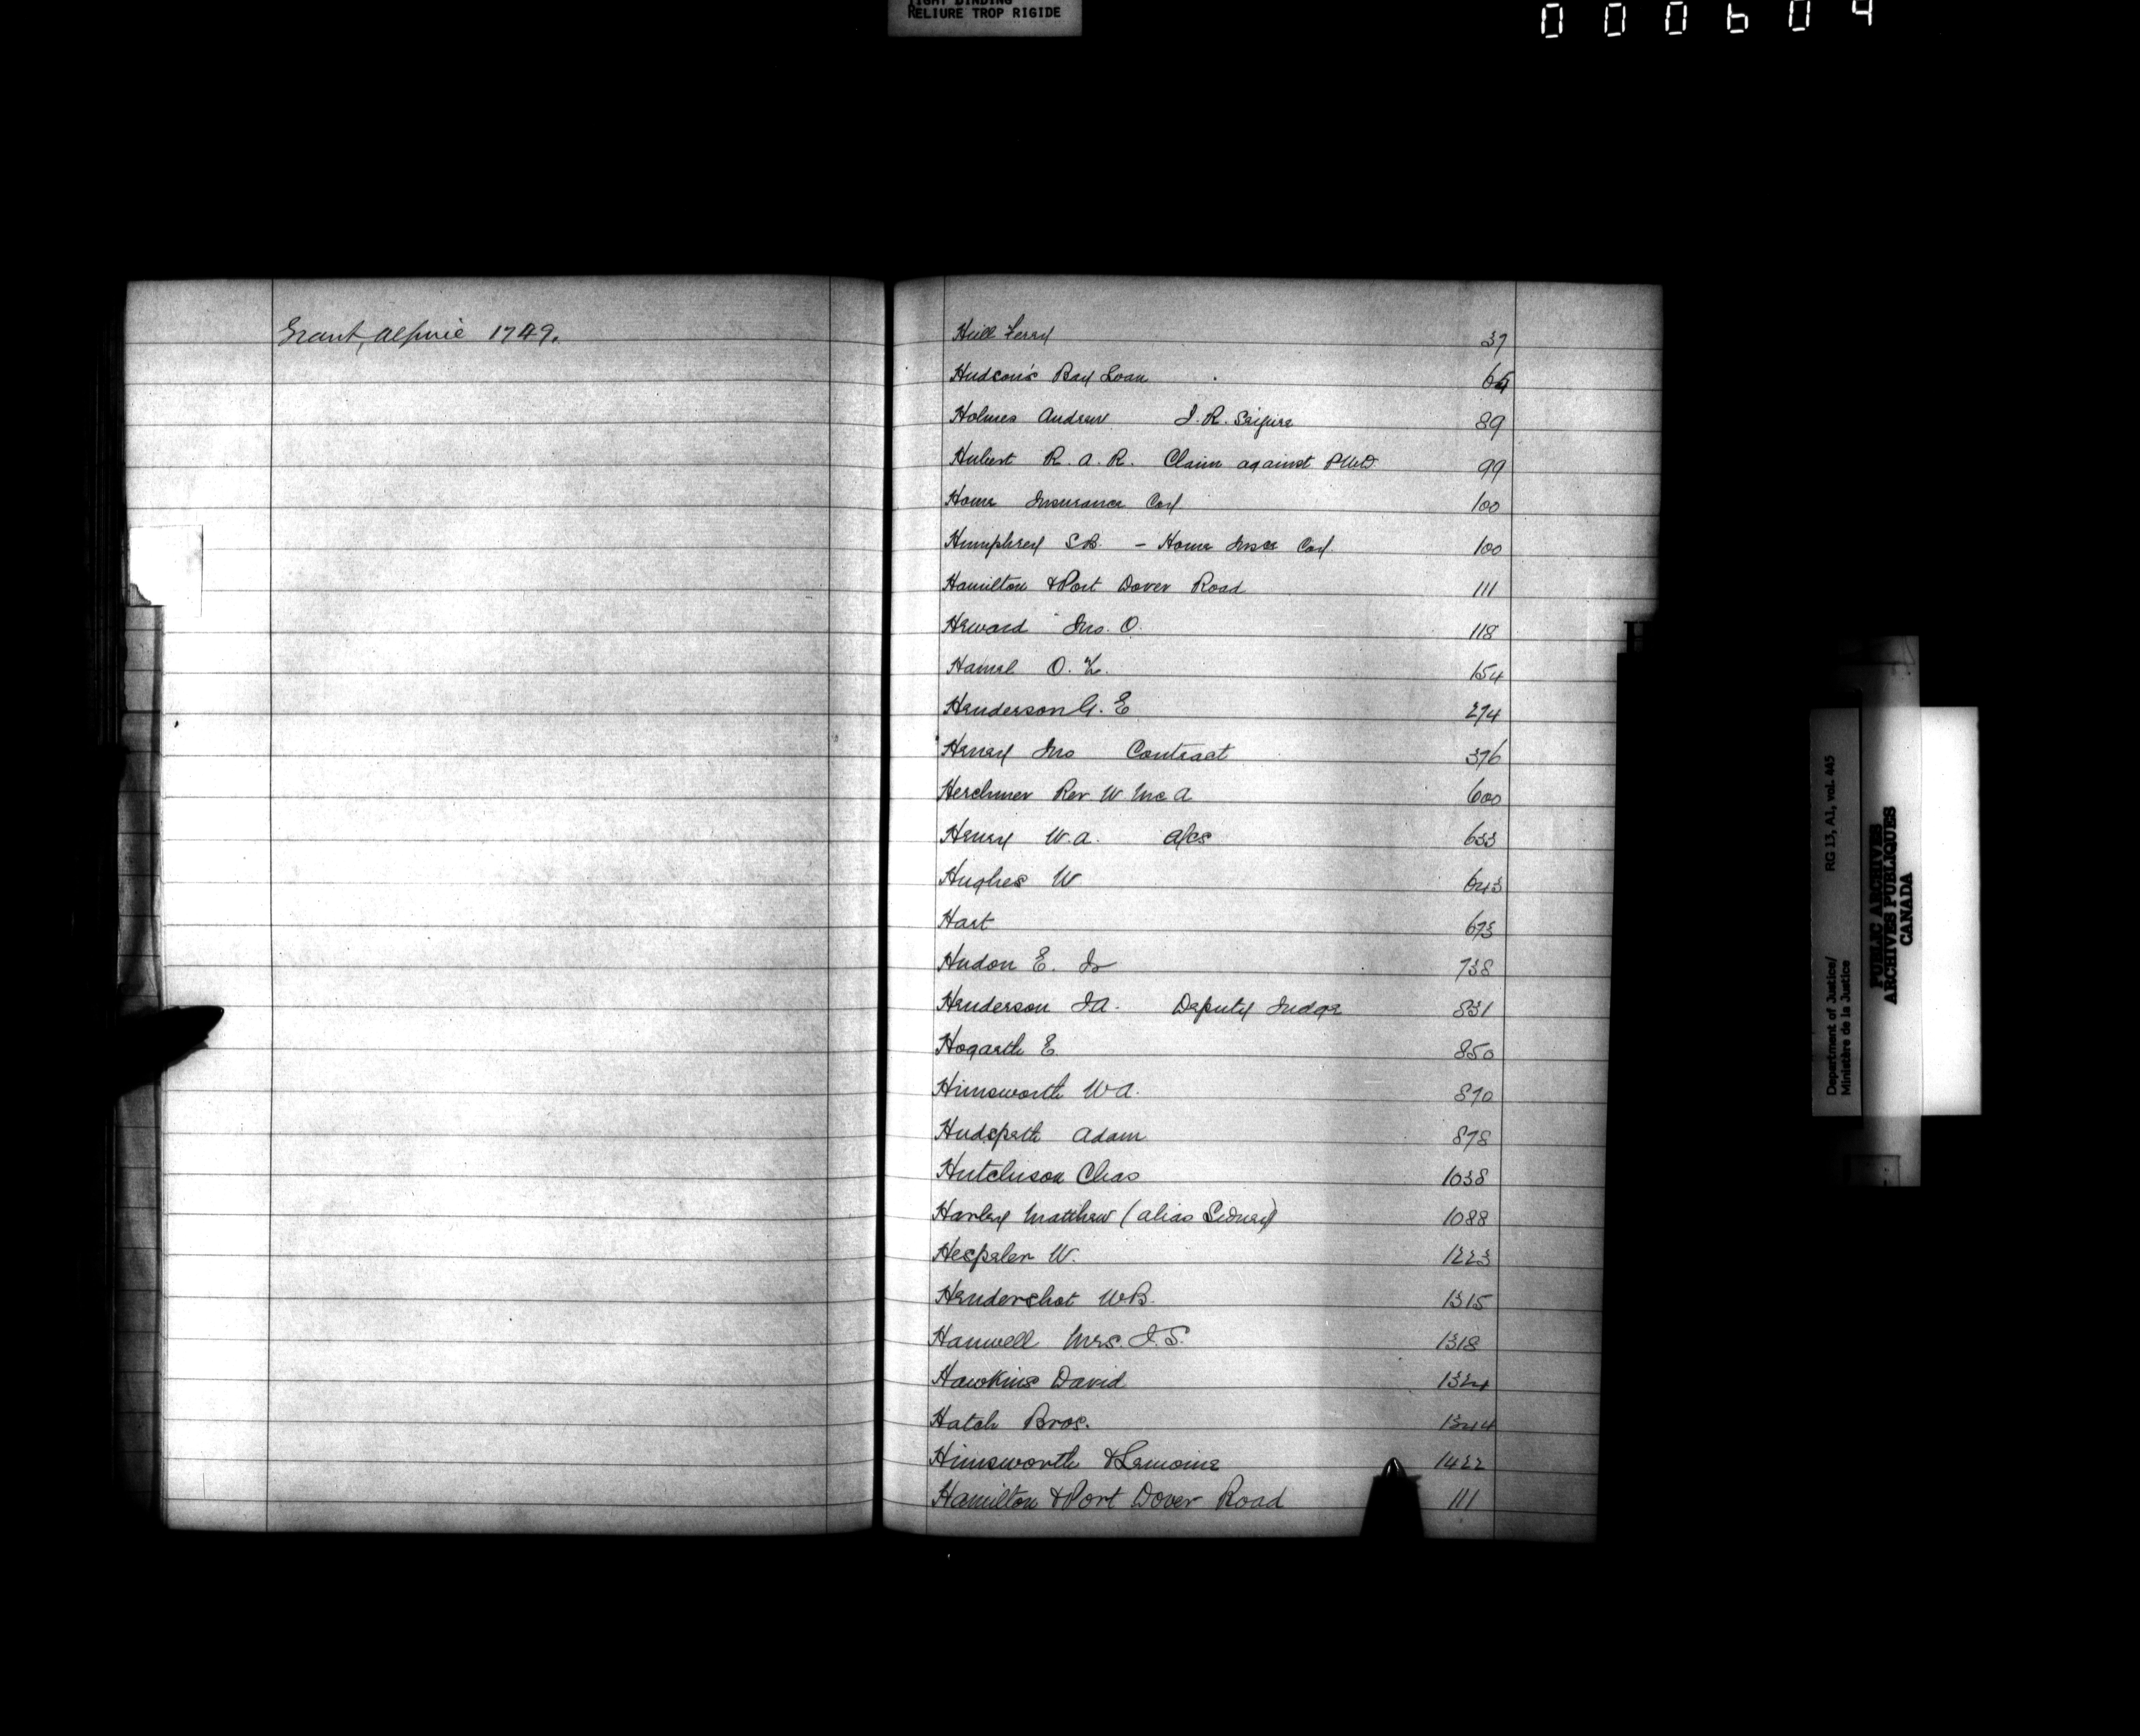 TIGHT BINDING
RELIURE TROP RIGIDE
000604
Grant, Alpine 1749.
Hull Ferry 37
Hudson's Bay Loan 64
Holmes Andrew J.R. 89
Hubert R.A.R. Claim against P.W.D. 99
Home Insurance Coy 100
Humphrey S.B. - Home Insce Coy. 100
Hamilton & Port Dover Road 111
Heward Jno. O. 118
Hamel O. 154
Henderson G. E 274
Henry Jno Contract 376
Herchmer Rev. W McA 600
Henry W.A. a/cs 633
Hughes W 643
Hart 673
Hudon E. Jr 738
Henderson J A. Deputy Judge 831
Hogarth E 850
Himsworth W A. 870
Hudspeth Adam 878
Hutchison Chas 1038
Harley Matthew (alias Sidney) 1088
Hespeler W. 1223
Hendershot W B. 1315
Hanwell Mrs. J. S. 1318
Hawkins David 1324
Hatch Bros. 1344
Himsworth & Lemoine 1422
Hamilton & Port Dover Road 111
H
Department of Justice/ RG 13, A1, vol. 445
Ministère de la Justice
PUBLIC ARCHIVES
ARCHIVES PUBLIQUES
CANADA